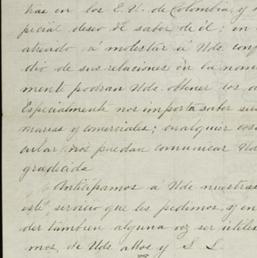 has en los E. U. de Colombia, y
pecial deseo de saber de él: en
atrevido a molestar a Uds con
dio de sus relaciones en la nom
mente podran Uds. obtener los
Especialmente nos importa saber su
marias y comerciales; cualquier cos
cular nos puedan comunicar Ud
gradecida.
Anticipamos a Uds nuestras
este servicio que les pedimos, y en
der tambien alguna vez ser utiles
mos, de Uds attos y S. S.